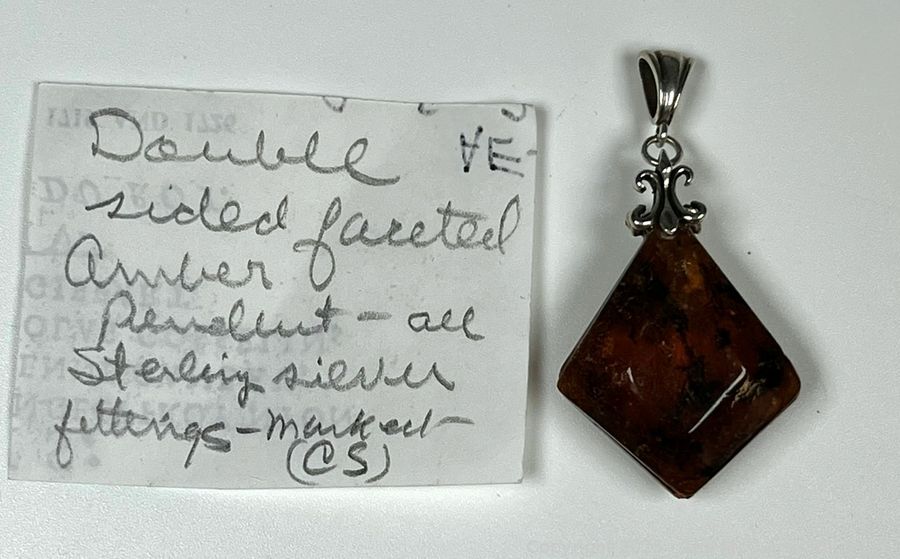 Double VE-
sided faceted
Amber
Pendent - all
Sterling silver
fittings - marked
(CS)